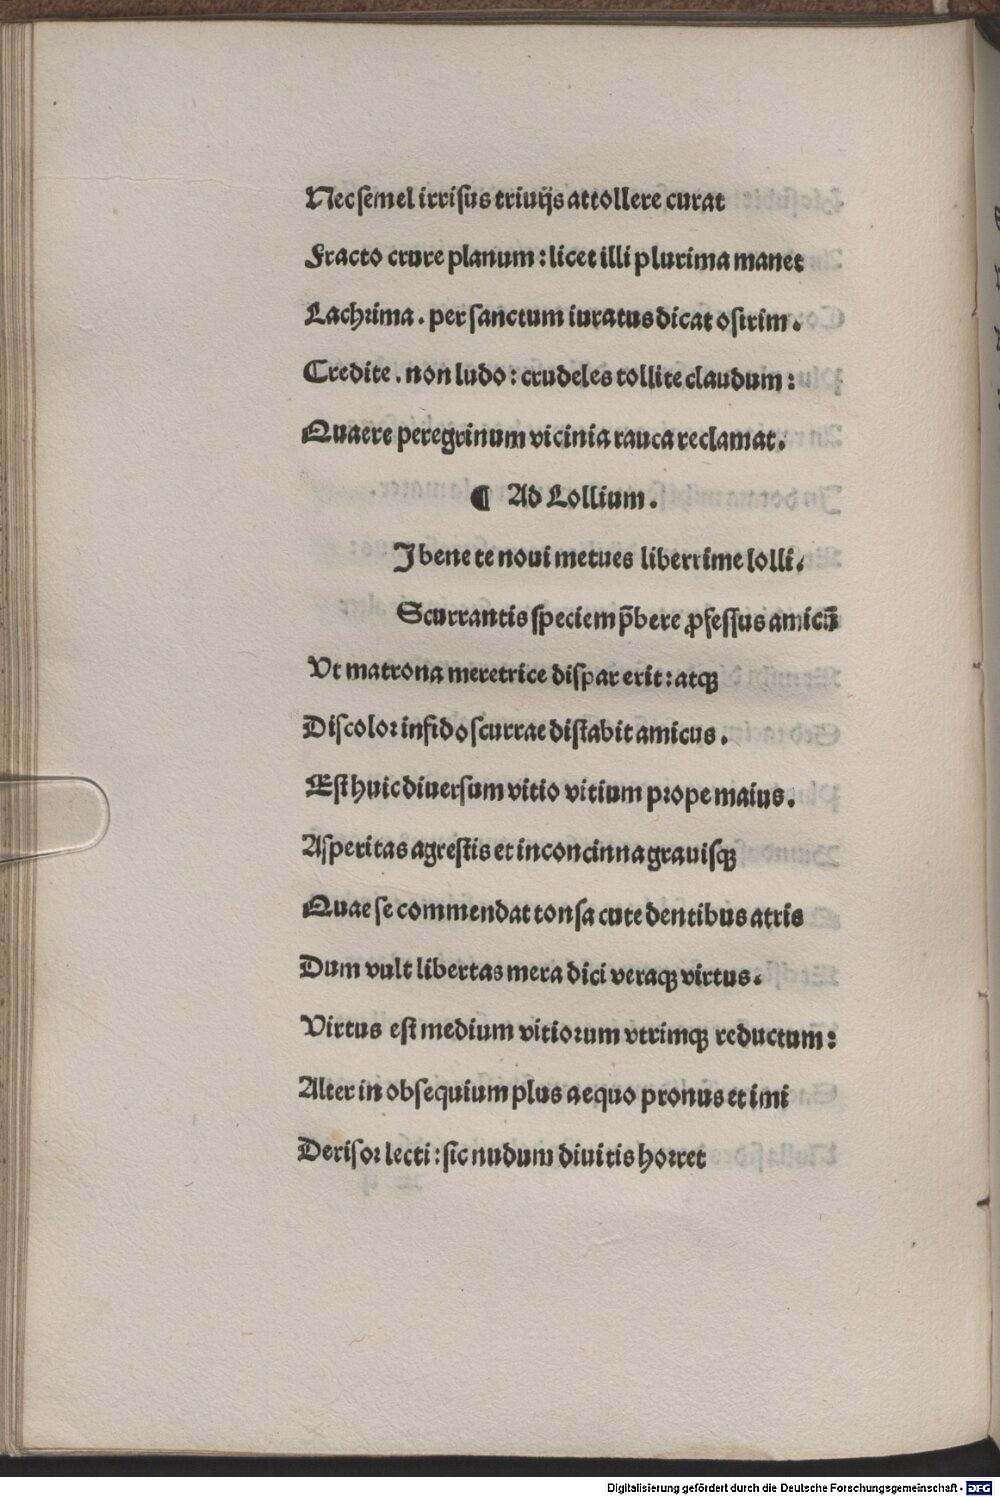 Nec semel irrisus triuijs attollere curat
Fracto crure planum : licet illi plurima manet
Lachrima . per sanctum iuratus dicat osirim .
Credite . non ludo : crudeles tollite claudum :
Quaere peregrinum vicinia rauca reclamat .
¶ Ad Lollium .
I bene te noui metues liberrime lolli .
Scurrantis speciem p̄bere ꝓfessus amicū
Vt matrona meretrice dispar erit : atqꝫ
Discolor infido scurrae distabit amicus .
Est huic diuersum vitio vitium prope maius .
Asperitas agrestis et inconcinna grauisqꝫ
Quae se commendat tonsa cute dentibus atris
Dum vult libertas mera dici veraqꝫ virtus .
Virtus est medium vitiorum vtrimqꝫ reductum :
Alter in obsequium plus aequo pronus et imi
Derisor lecti : sic nudum diuitis horret
Digitalisierung gefördert durch die Deutsche Forschungsgemeinschaft - DFG